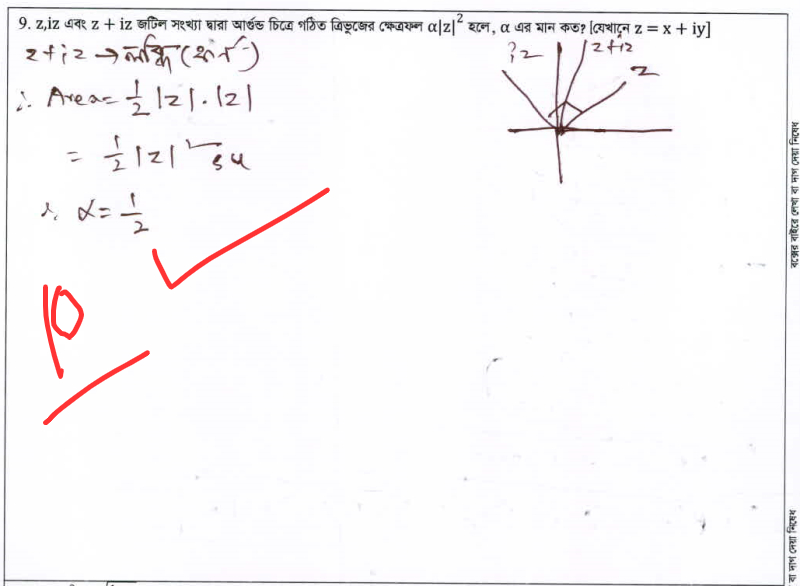 9. z,iz এবং z + iz জটিল সংখ্যা দ্বারা আর্গন্ড চিত্রে গঠিত ত্রিভুজের ক্ষেত্রফল α|z|² হলে, α এর মান কত? [যেখানে z = x + iy]
z + iz → লব্ধি (কর্ণ)
iz z+iz z
∴ Area = 1/2 |z| . |z|
= 1/2 |z|² su
∴ α = 1/2
10
বক্সের বাইরে লেখা বা দাগ দেয়া নিষেধ
বা দাগ দেয়া নিষেধ